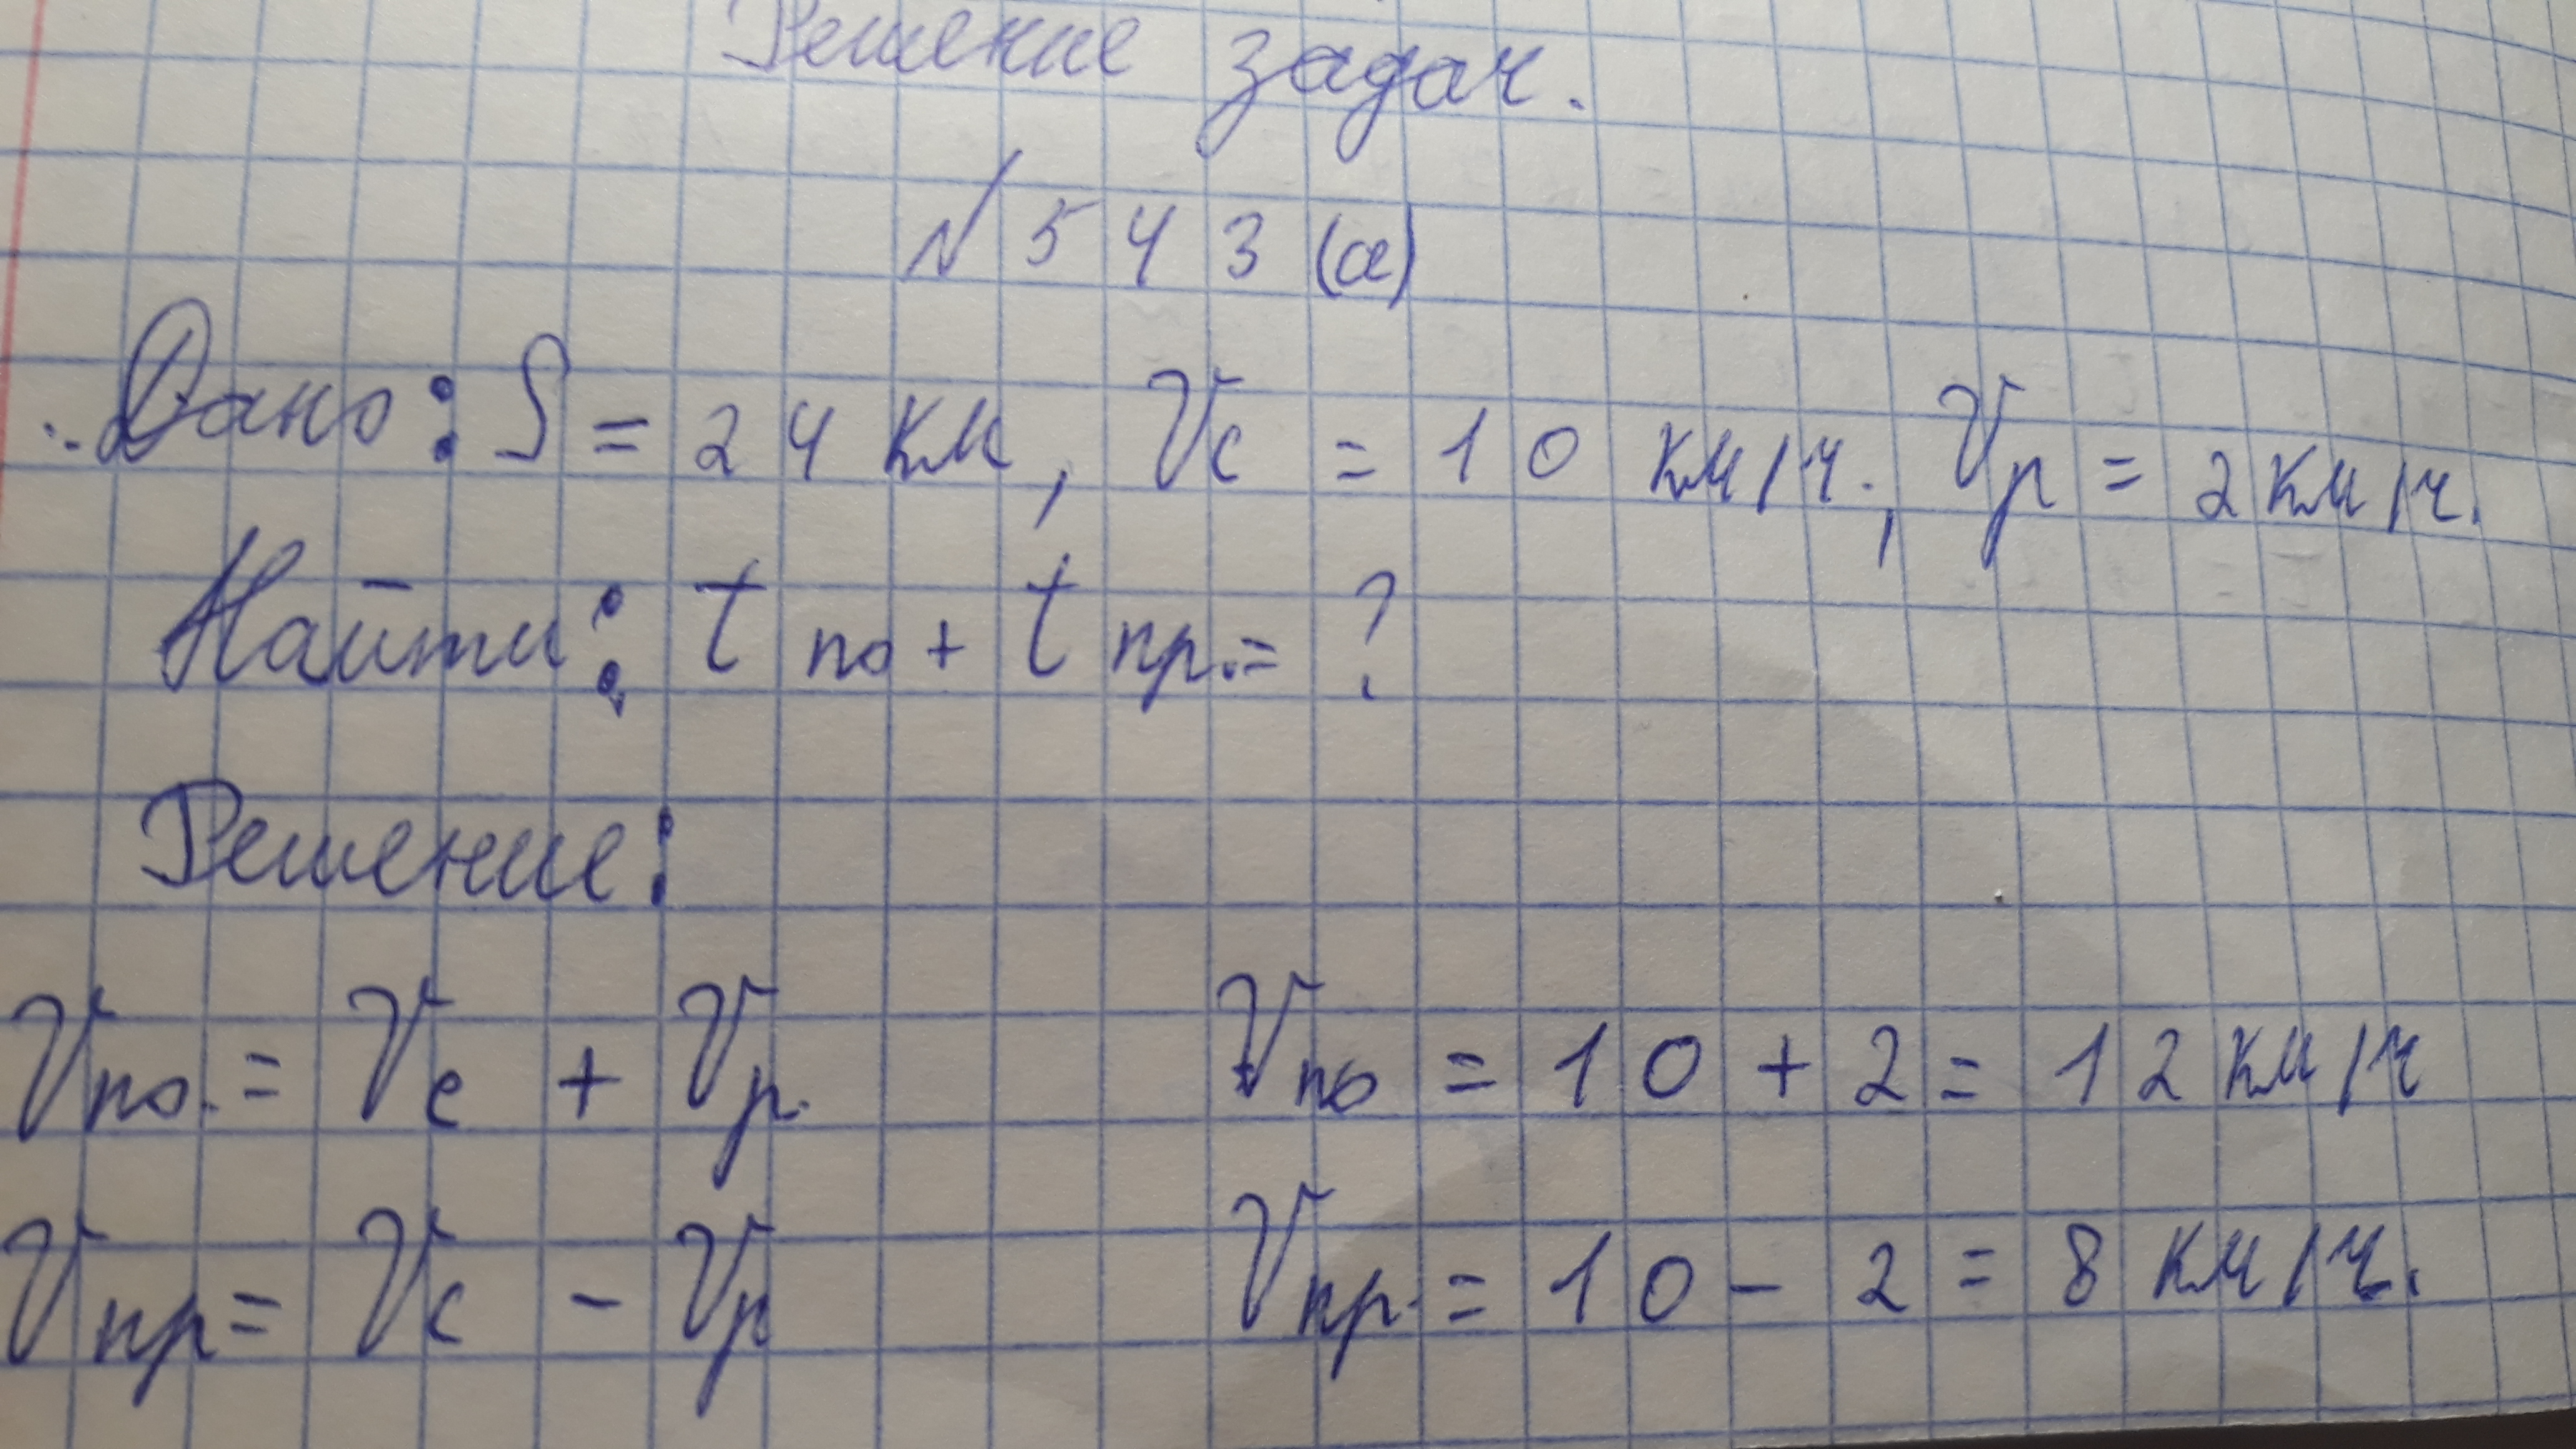 Решение задач.
№ 543 (а)
Дано: S = 24 км, Vс = 10 км/ч., Vр = 2 км/ч.
Найти: t по + t пр. = ?
Решение:
Vпо. = Vс + Vр. Vпо = 10 + 2 = 12 км/ч
Vпр = Vс - Vр Vпр. = 10 - 2 = 8 км/ч.